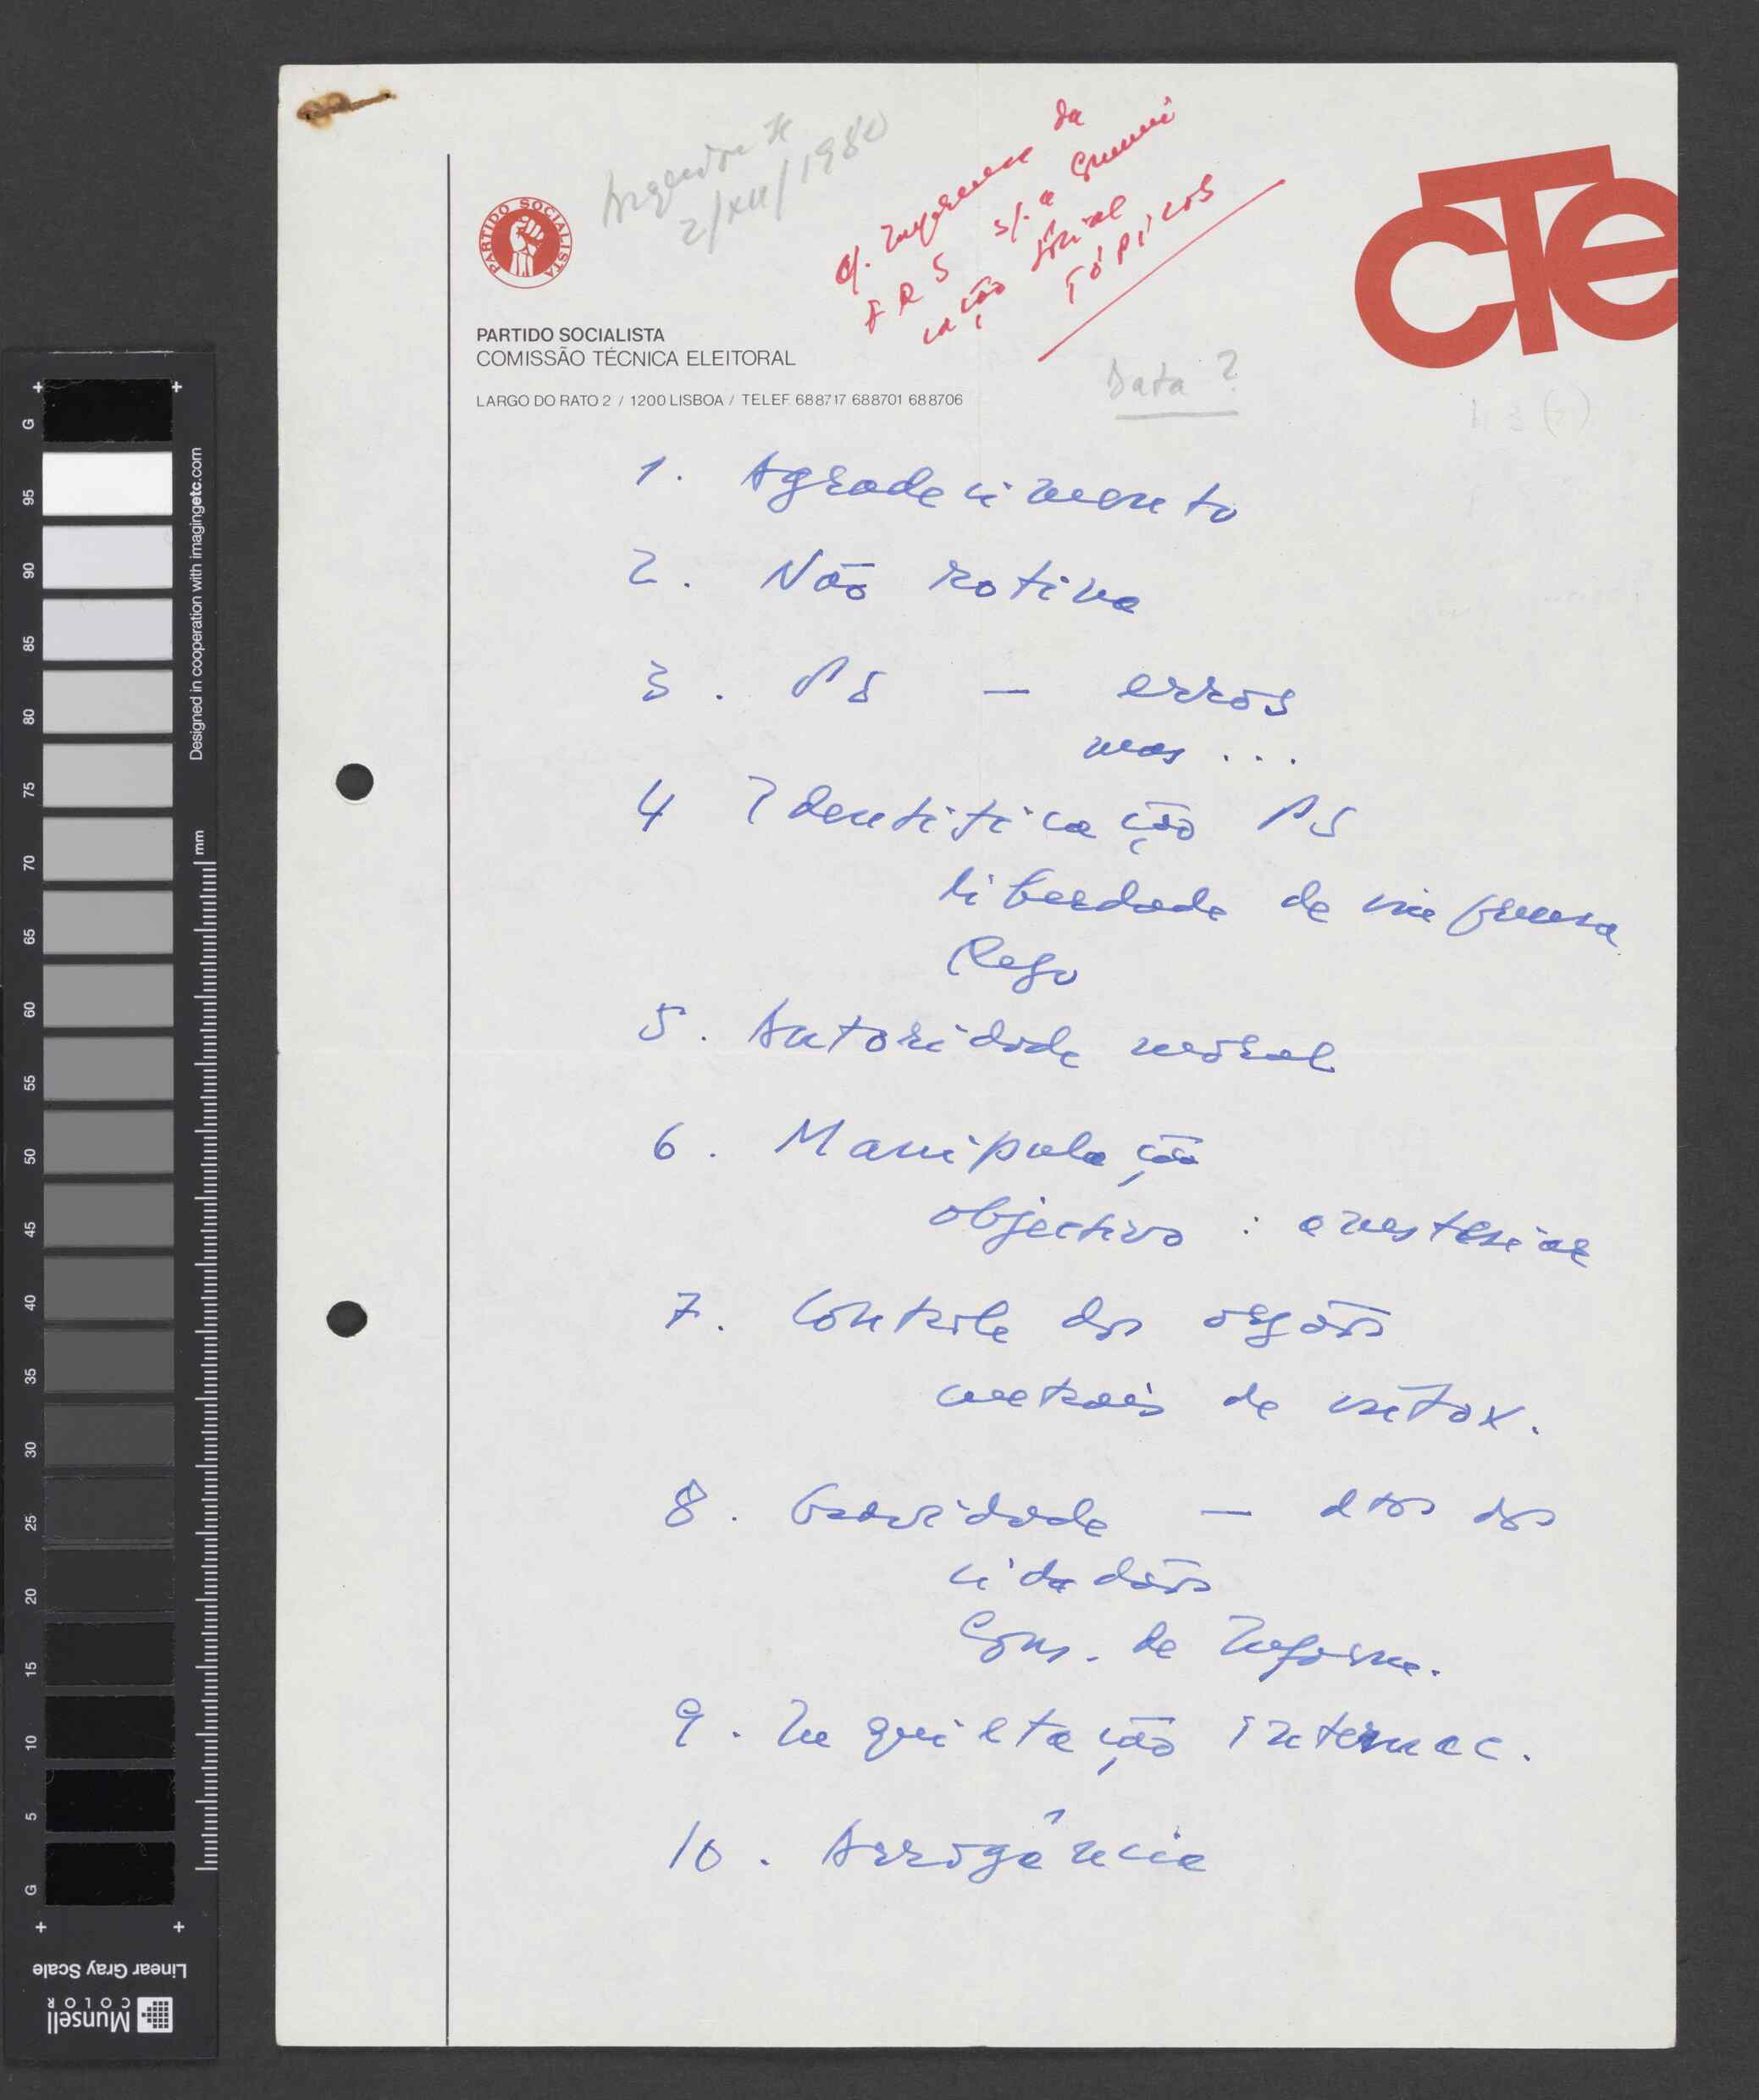 2/XII/1980
Cf. Imprensa da
FRS s/. a Comuni
cação Social
TÓPICOS
CTe
PARTIDO SOCIALISTA
PARTIDO SOCIALISTA
COMISSÃO TÉCNICA ELEITORAL
LARGO DO RATO 2 / 1200 LISBOA / TELEF. 688717 688701 688706
Data ?
1. Agradecimento
2. Não rotina
3. PS — erros
mas ...
4 Identificação PS
liberdade de imprensa
Rego
5. Autoridade moral
6. Manipulação
objectivo : anestesiar
7. Controle dos orgãos
centrais de intox.
8. Gravidade — dtos dos
cidadãos
Cons. de Inform.
9. Inquietação internac.
10. Arrogância
G
95
90
85
80
75
70
65
60
55
50
45
40
35
30
25
20
15
10
5
G
mm
Designed in cooperation with imagingetc.com
Linear Gray Scale
Munsell
COLOR